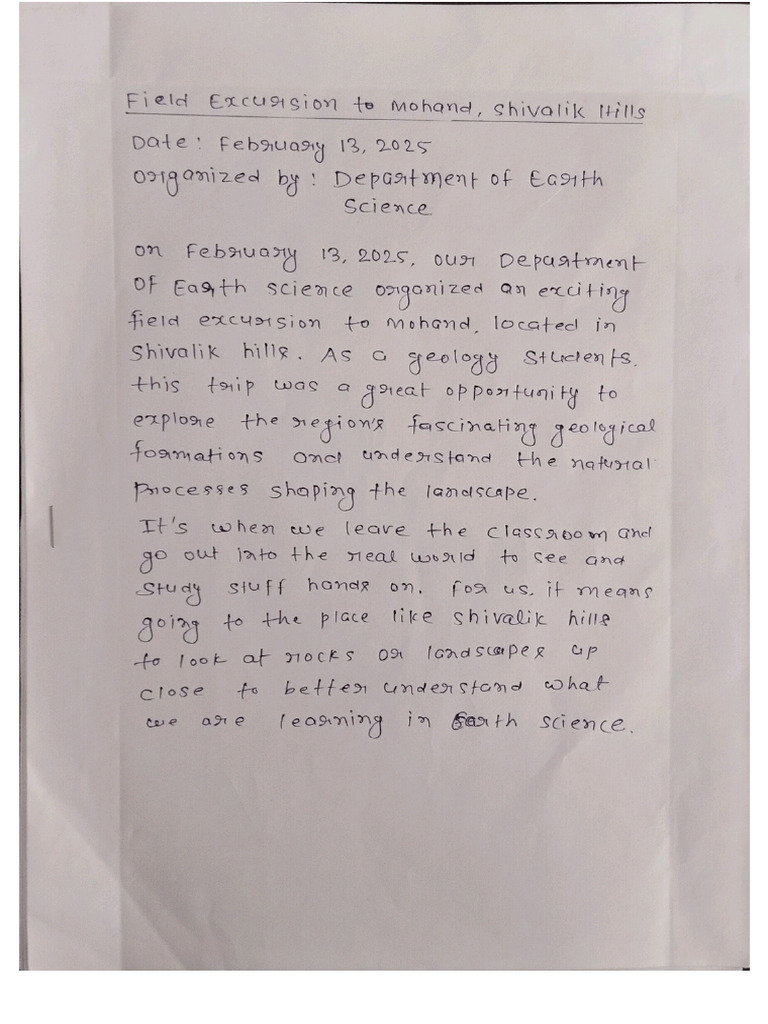 Field Excursion to Mohand, Shivalik Hills
Date: February 13, 2025
Organized by: Department of Earth
Science
on February 13, 2025, our Department
of Earth science organized an exciting
field excursion to Mohand, located in
Shivalik hills. As a geology students.
this trip was a great opportunity to
explore the region's fascinating geological
formations and understand the natural
Processes shaping the landscape.
It's when we leave the classroom and
go out into the real world to see and
study stuff hands on. For us, it means
going to the place like Shivalik hills
to look at rocks or landscapes up
close to better understand what
we are learning in Earth science.